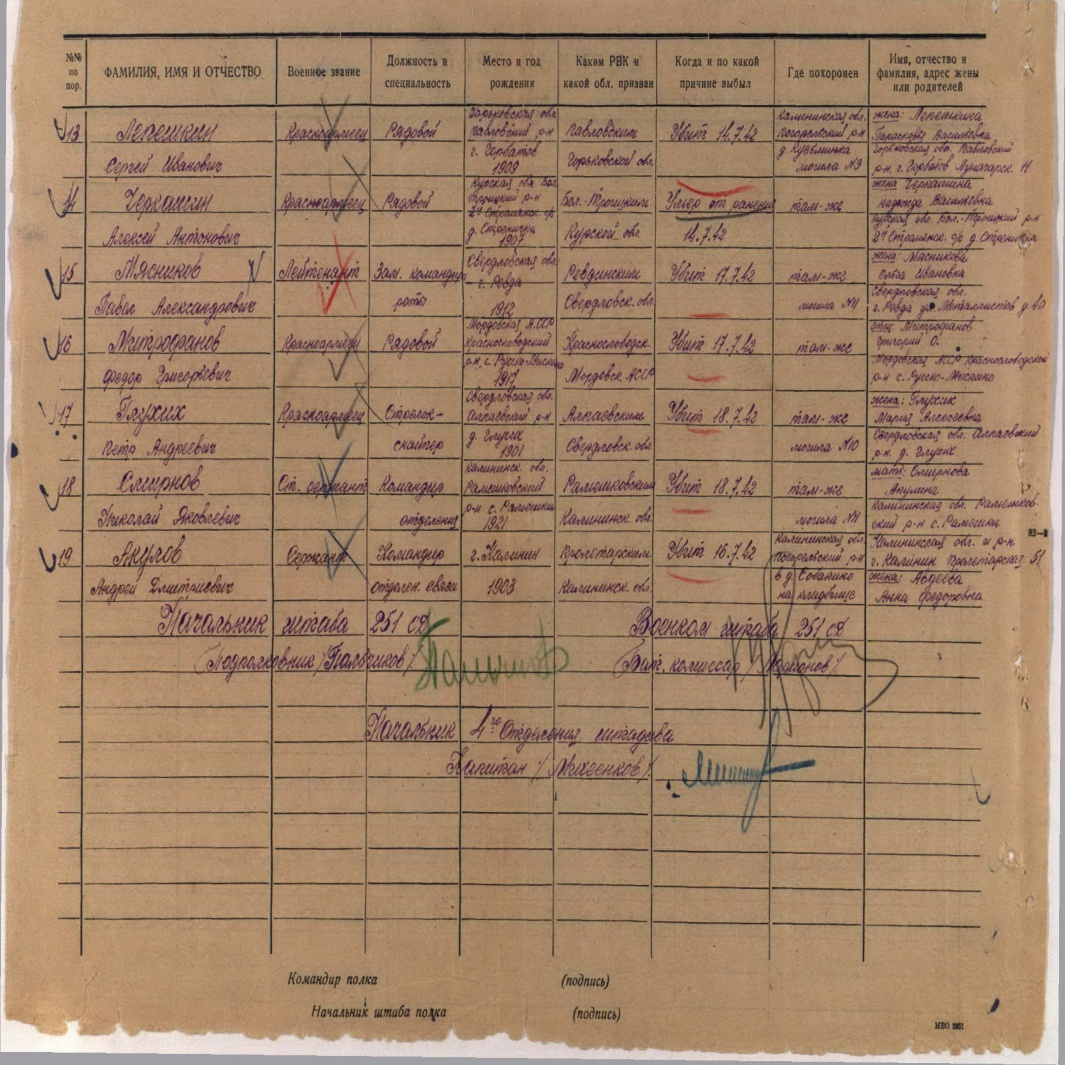 №№ по пор.
ФАМИЛИЯ, ИМЯ И ОТЧЕСТВО
Военное звание
Должность и специальность
Место и год рождения
Каким РВК и какой обл. призван
Когда и по какой причине выбыл
Где похоронен
Имя, отчество и фамилия, адрес жены или родителей
13 Лепешкин Красноармеец Рядовой Горьковская обл. Павловский р-н г. Горбатов 1909 Павловским Горьковской обл. Убит 14.7.42 Калининская обл. Погорельский р-н д. Кузьминка могила №9 жена: Лепешкина Параскева Васильевна Горьковская обл. Павловский р-н. г. Горбатов 11
Сергей Иванович
14 Черкашин Красноармеец Рядовой Курская обл. Бол. Троицкий р-н д. 1907 Бол.-Троицким Курской обл. Умер от ранений 14.7.42 там-же жена Черкашина Надежда Васильевна Курская обл. Бол.-Троицкий р-н с/с д.
Алексей Антонович
15 Мясников Лейтенант Зам. командира роты Свердловская обл. г. Ревда 1912 Ревдинским Свердловск. обл. Убит 17.7.42 там-же могила №11 жена: Мясникова Ольга Ивановна Свердловская обл. г. Ревда ул. Металлистов д 40
Павел Александрович
16 Митрофанов Красноармеец Рядовой Мордовская АССР Краснослободский р-н, с. 1917 Краснослободск. Мордовск. АССР Убит 17.7.42 там-же отец: Митрофанов Григорий О. Мордовская АССР Краснослободской р-н с.
Федор Григорьевич
17 Глухих Красноармеец Стрелок-снайпер Свердловская обл. Алапаевский р-н д Глухих 1901 Алпаевским Свердловск. обл. Убит 18.7.42 там-же могила №10 жена: Глухих Мария Алексеевна Свердловская обл. Алпаевский р-н. д. Глухих
Петр Андреевич
18 Смирнов Ст. сержант Командир отделения Калининск. обл. Рамешковский р-н с. Рамешки 1921 Рамешковским Калининск. обл. Убит 18.7.42 там-же могила №11 мать: Смирнова Акулина Калининская обл. Рамешковский р-н с. Рамешки
Николай Яковлевич
19 Акулов Сержант Командир отделен. связи г. Калинин 1903 Пролетарским Калининск. обл. Убит 16.7.42 Калининская обл. Погорельский р-н в д. на кладбище Калининская обл. и р-н. г. Калинин Пролетарская 51 жена: Авдеева Анна Федоровна
Андрей Дмитриевич
82—2
Начальник штаба 251 сд
Военком штаба 251 сд
Подполковник /Пальчиков/
Бат. комиссар
Начальник 4го Отделения штадива
Капитан /Михеенков/.
Командир полка (подпись)
Начальник штаба полка (подпись)
МВО 2651